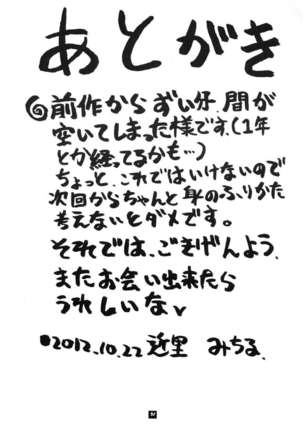 あとがき
◎前作からずい分、間が
空いてしまった様です。(1年
とか経ってるかも…)
ちょっと、これではいけないので
次回からちゃんと身のふりかた
考えないとダメです。
それでは、ごきげんよう、
またお会い出来たら
うれしいな
●2012.10.22 近里 みちる